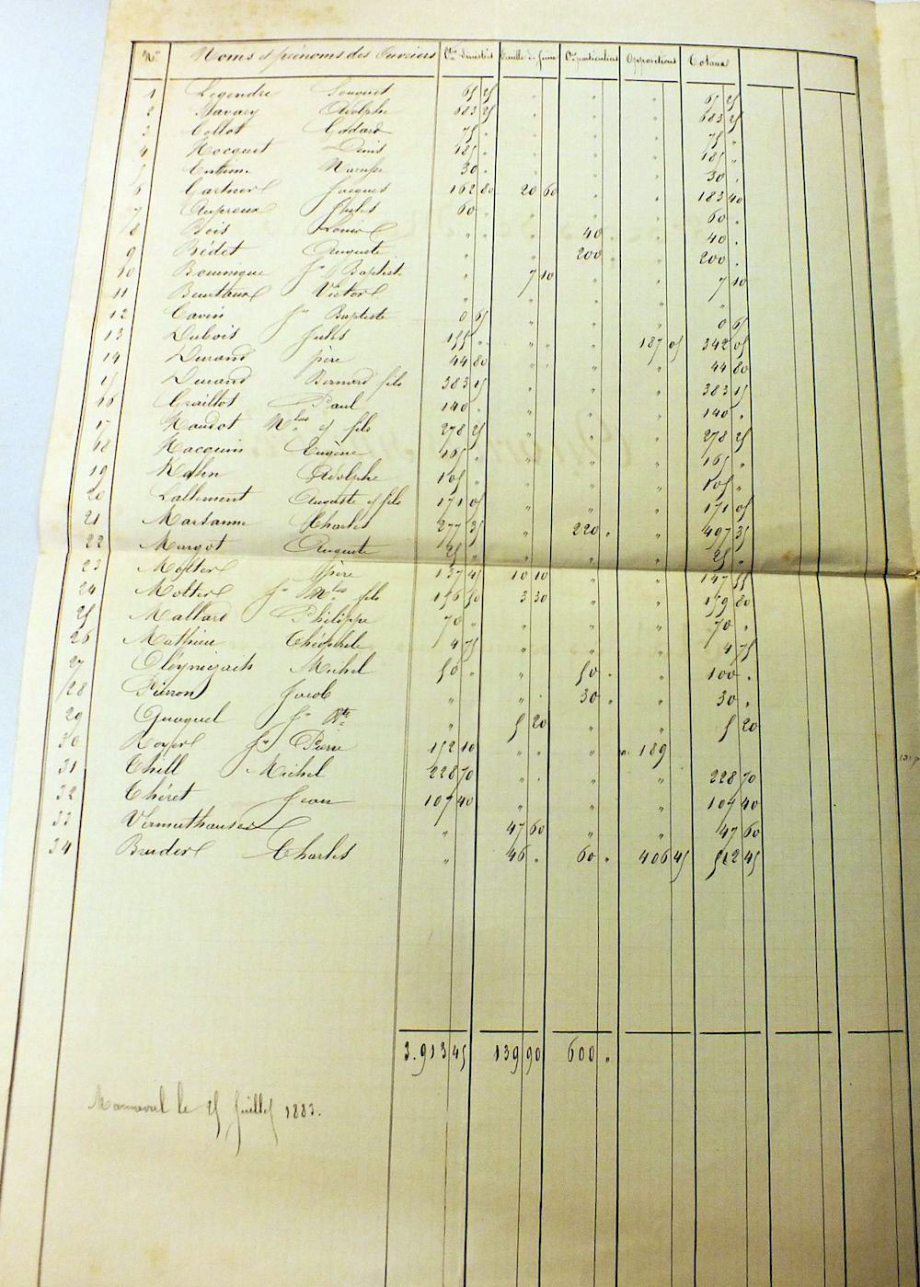 Nos Noms et prénoms des Ouvriers Feuille de Oppositions Totaux
1 Legendre 65 25 " " " 65 25
2 Adolphe 683 25 " " " 683 25
3 Collot 75 . " " " 75 "
4 Hocquet Denis 185 . " " " 185 "
5 30 . " " " 30 .
6 Jacques 162 80 20 60 " " 183 40
7 Jules 60 . " " " 60 .
8 Bois Louis " . " . 40 . " 40 .
9 Bédet Auguste " " 200 . " 200 .
10 Jn Baptiste " 7 10 " " 7 10
11 Victor " " " " "
12 Cavin Jn Baptiste 0 65 " " " 0 65
13 Dubois Jules 155 . " . " 187 05 342 05
14 Durand père 44 80 " " " 44 80
15 Durand Bernard fils 383 15 " " " 383 15
16 Graillot Paul 140 . " " " 140 .
17 Haudot Nlas et fils 278 25 " " " 278 25
18 Hacquin Eugène 165 . " " " 165 "
19 Hahn Adolphe 105 " " " " 105 "
20 Lallement Auguste et fils 171 05 " " " 171 05
21 Marsanne Charles 277 35 " 220 . " 497 35
22 Margot Auguste 25 " " " " 25 "
23 père 137 45 10 10 " " 147 55
24 Mottier Jn Nlas fils 156 50 3 30 " " 159 80
25 Mallard Philippe 70 . " " " 70 .
26 Mathieu Théophile 4 75 " " " 4 75
27 Michel 50 . " 50 . " 100 .
28 Pierron Jacob " " 30 . " 30 .
29 Jn Bte " 5 20 " " 5 20
30 Royer Jn Pierre 152 10 " " " 189
31 Thill Michel 228 70 " " " 228 70
32 Théret Jean 107 40 " " " 107 40
33 " 47 60 " " 47 60
34 Bruder Charles " 46 . 60 . 406 45 512 45
3.913 45 139 90 600 .
le 25 Juillet 1883.